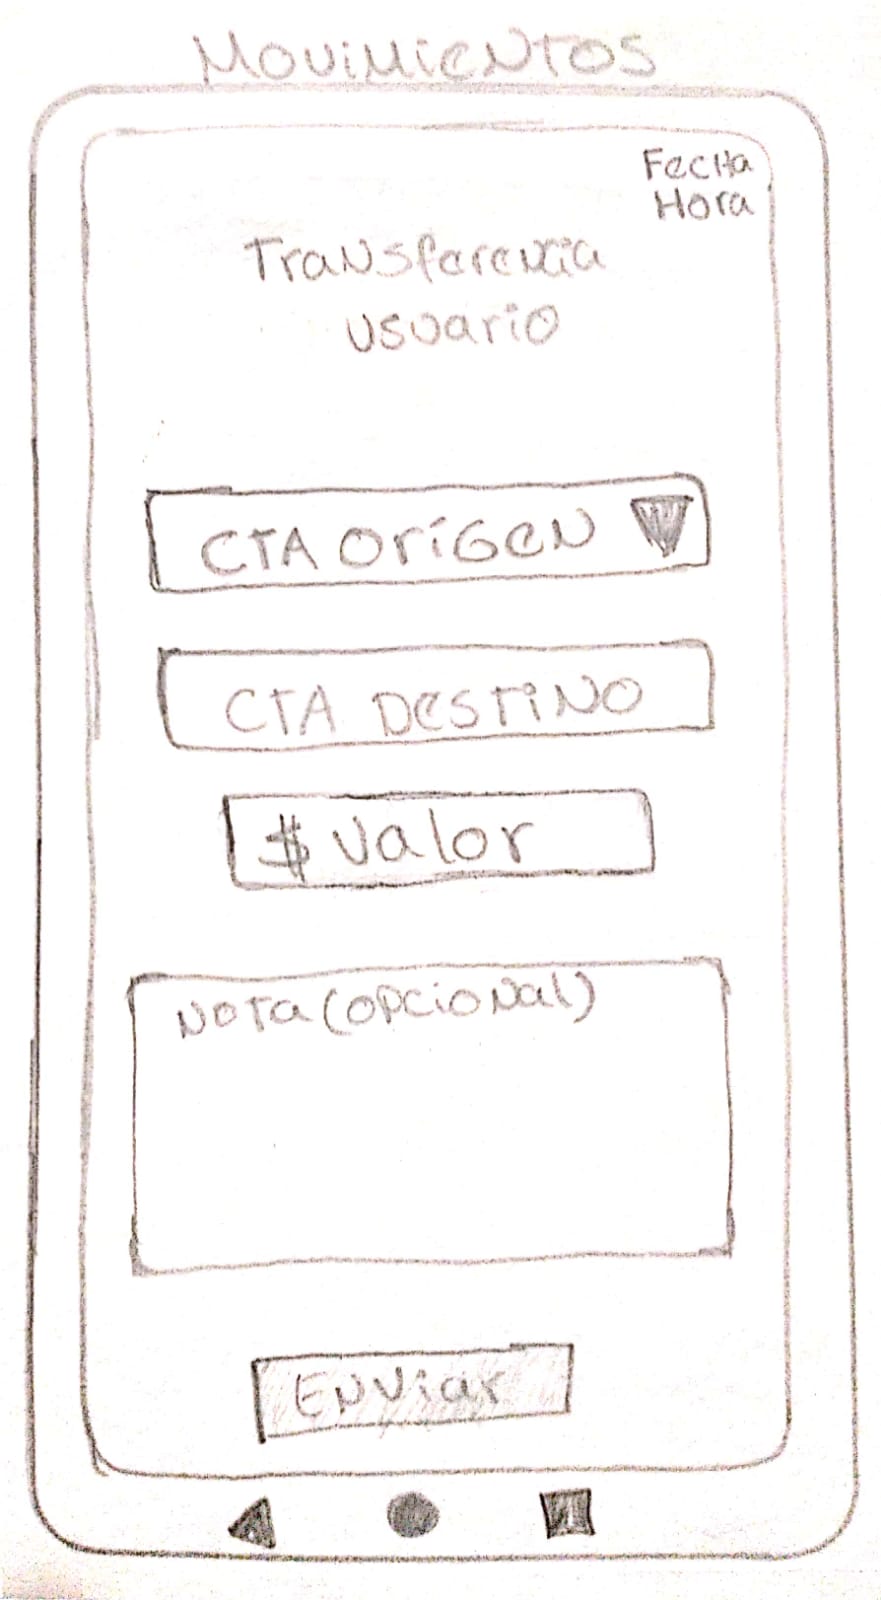 MOViMiENTOS
Fecha
Hora
Transferencia
usuario
CTA Origen
CTA Destino
$ Valor
Nota (opcional)
Enviar